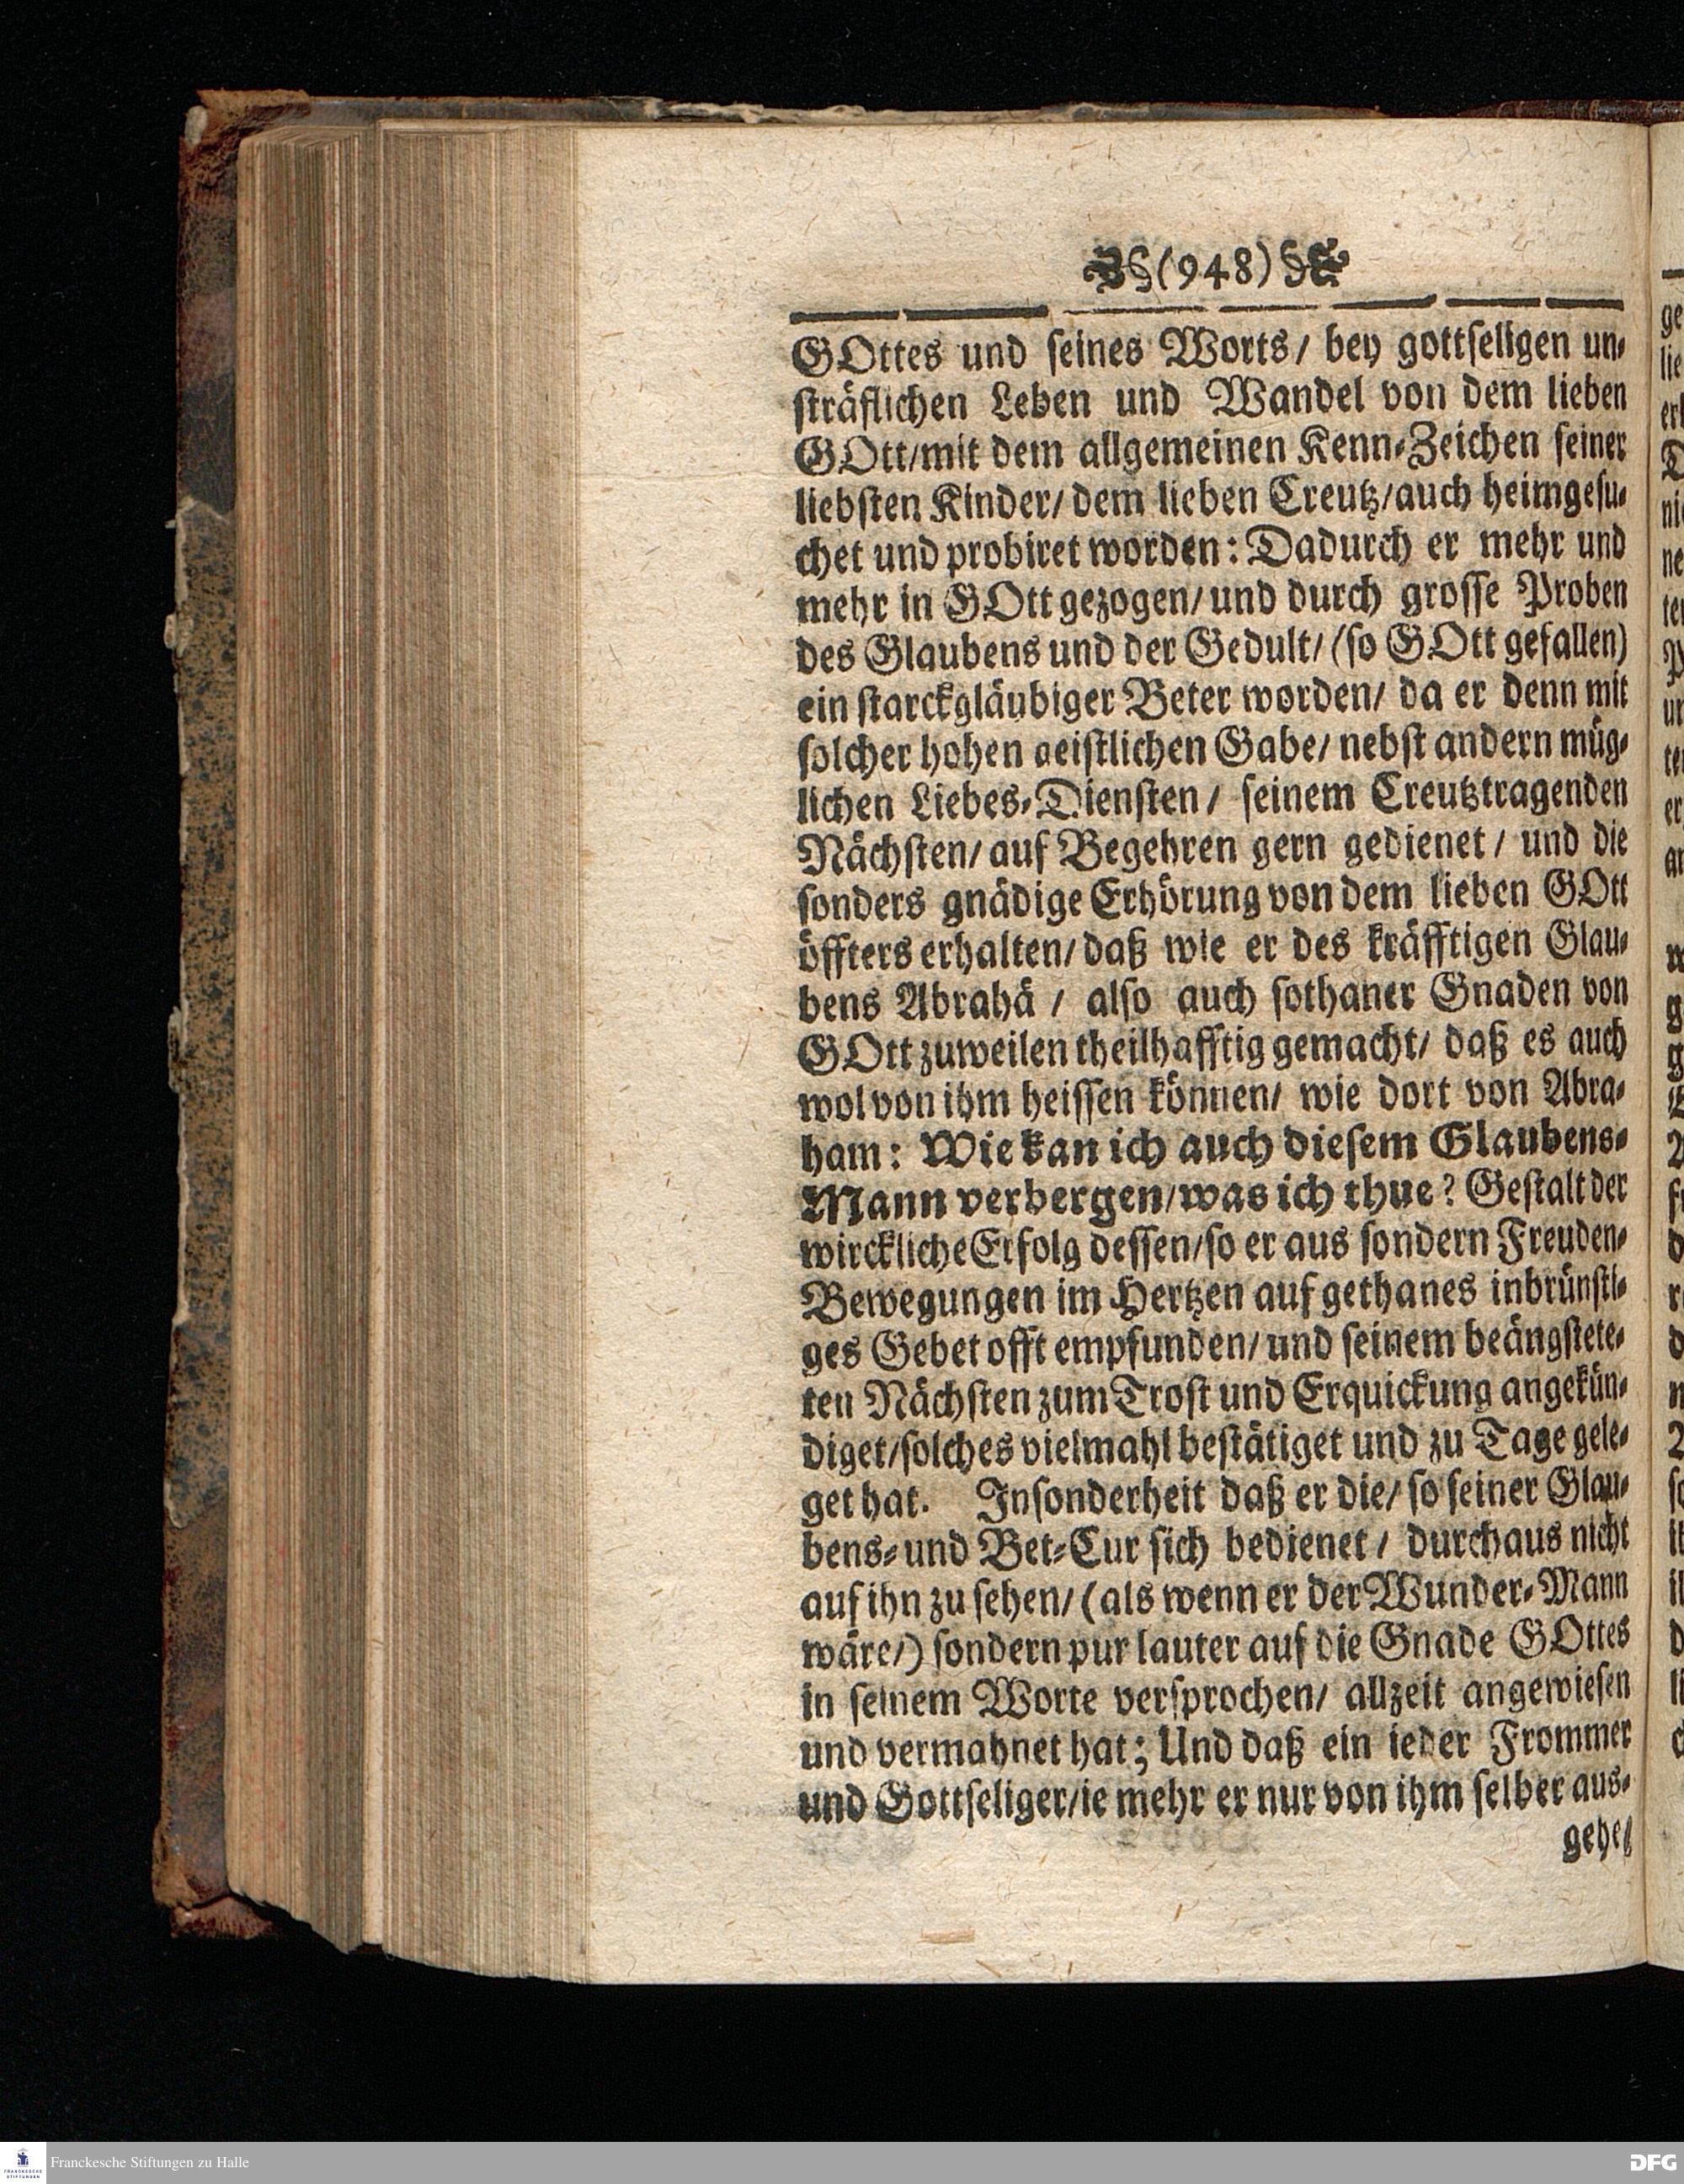 (948)
GOttes und seines Worts/ bey gottseligen un-
sträflichen Leben und Wandel von dem lieben
GOtt/mit dem allgemeinen Kenn-Zeichen seiner
liebsten Kinder/ dem lieben Creutz/auch heimgesu-
chet und probiret worden: Dadurch er mehr und
mehr in GOtt gezogen/ und durch grosse Proben
des Glaubens und der Gedult/ (so GOtt gefallen)
ein starckgläubiger Beter worden/ da er denn mit
solcher hohen geistlichen Gabe/ nebst andern müg-
lichen Liebes-Diensten/ seinem Creutztragenden
Nächsten/ auf Begehren gern gedienet/ und die
sonders gnädige Erhörung von dem lieben GOtt
öffters erhalten/ daß wie er des kräfftigen Glau-
bens Abrahä/ also auch sothaner Gnaden von
GOtt zuweilen theilhafftig gemacht/ daß es auch
wol von ihm heissen können/ wie dort von Abra-
ham: Wie kan ich auch diesem Glaubens-
Mann verbergen/was ich thue? Gestalt der
wirckliche Erfolg dessen/so er aus sondern Freuden-
Bewegungen im Hertzen auf gethanes inbrünsti-
ges Gebet offt empfunden/ und seinem beängstete-
ten Nächsten zum Trost und Erquickung angekün-
diget/solches vielmahl bestätiget und zu Tage gele-
get hat. Insonderheit daß er die/ so seiner Glau-
bens- und Bet-Cur sich bedienet/ durchaus nicht
auf ihn zu sehen/ (als wenn er der Wunder-Mann
wäre/) sondern pur lauter auf die Gnade GOttes
in seinem Worte versprochen/ allzeit angewiesen
und vermahnet hat; Und daß ein ieder Frommer
und Gottseliger/ie mehr er nur von ihm selber aus-
gehe/
Franckesche Stiftungen zu Halle
DFG